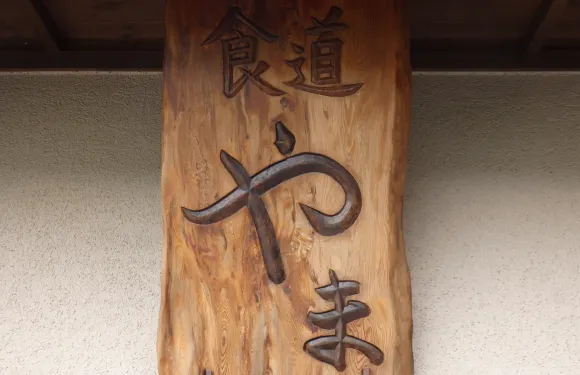 食道
やま